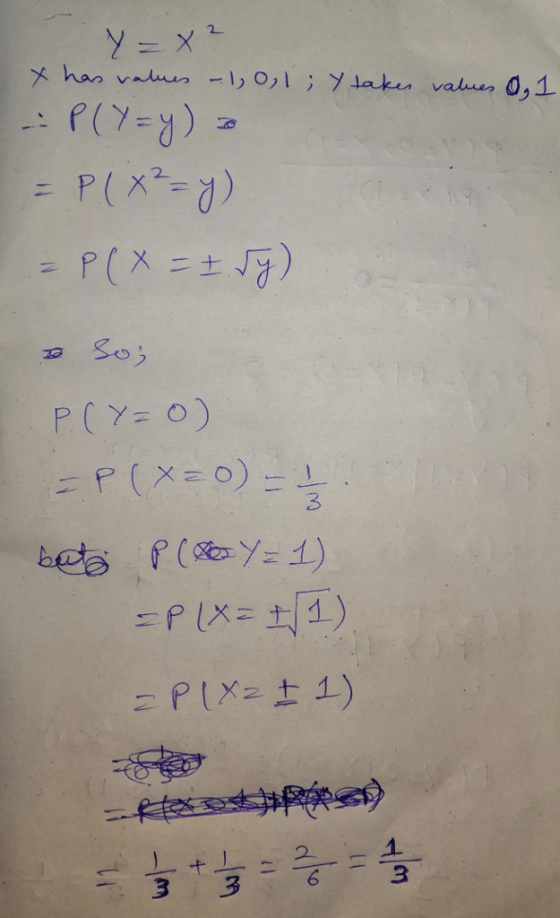 Y = X²
X has values -1, 0, 1 ; Y takes values 0, 1
∴ P(Y=y)
= P(X²=y)
= P(X = ± √y)
So;
P(Y=0)
= P(X=0) = 1/3.
but P(Y=1)
= P(X= ±√1)
= P(X= ± 1)
= 1/3 + 1/3 = 2/6 = 1/3